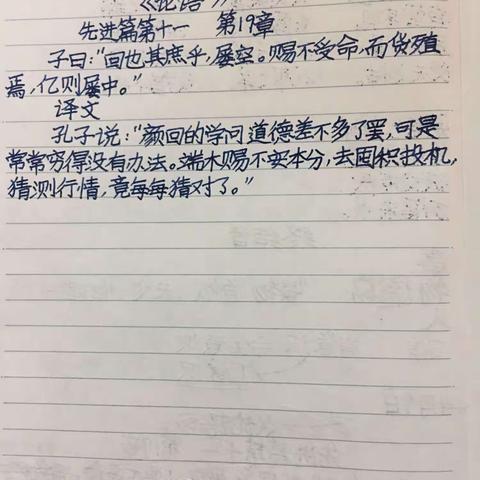 《论语》
先进篇第十一 第19章
子曰:“回也其庶乎,屡空。赐不受命,而货殖
焉,亿则屡中。”
译文
孔子说:“颜回的学问道德差不多了罢,可是
常常穷得没有办法。端木赐不安本分,去囤积投机,
猜测行情,竟每每猜对了。”